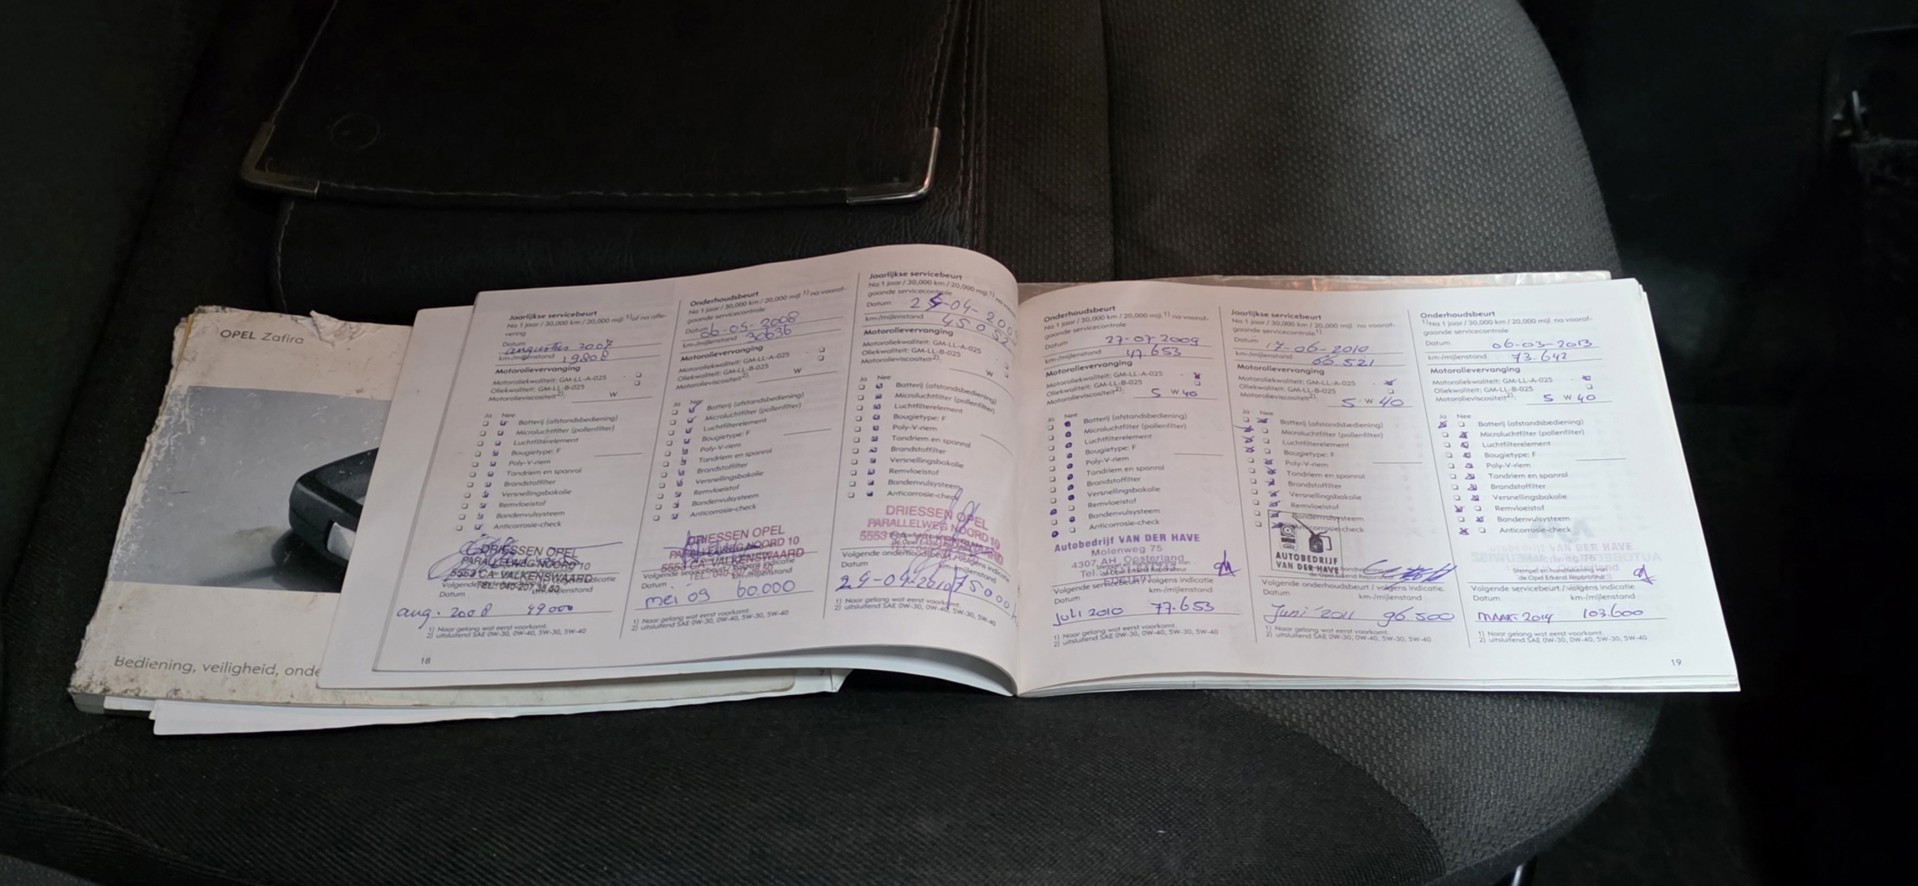 OPEL Zafira
Bediening, veiligheid, onde
Jaarlijkse servicebeurt
Na 1 jaar / 30,000 km / 20,000 mijl
vering
Datum augustus 2007
km-/mijlenstand 19808
Motorolievervanging
Motoroliekwaliteit: GM-LL-A-025
Oliekwaliteit: GM-LL-B-025
Motorolieviscositeit2): W
Ja Nee
Batterij (afstandsbediening)
Microluchtfilter (pollenfilter)
Luchtfilterelement
Bougietype: F
Poly-V-riem
Tandriem en spanrol
Brandstoffilter
Versnellingsbakolie
Remvloeistof
Bandenvulsysteem
Anticorrosie-check
DRIESSEN OPEL
PARALLELWEG NOORD 10
5553 CA VALKENSWAARD
Datum
aug. 2008 49000
1) Naar gelang wat eerst voorkomt.
2) uitsluitend SAE 0W-30, 0W-40, 5W-30, 5W-40
18
Onderhoudsbeurt
Na 1 jaar / 30,000 km / 20,000 mijl 1) na vooraf-
gaande servicecontrole
Datum 06-05-2008
km-/mijlenstand 30636
Motorolievervanging
Motoroliekwaliteit: GM-LL-A-025
Oliekwaliteit: GM-LL-B-025
Motorolieviscositeit2): W
Ja Nee
Batterij (afstandsbediening)
Microluchtfilter (pollenfilter)
Luchtfilterelement
Bougietype: F
Poly-V-riem
Tandriem en spanrol
Brandstoffilter
Versnellingsbakolie
Remvloeistof
Bandenvulsysteem
Anticorrosie-check
DRIESSEN OPEL
PARALLELWEG NOORD 10
5553 CA VALKENSWAARD
Datum
mei 09 60.000
1) Naar gelang wat eerst voorkomt.
2) uitsluitend SAE 0W-30, 0W-40, 5W-30, 5W-40
Jaarlijkse servicebeurt
Na 1 jaar / 30,000 km / 20,000 mijl 1) na vooraf-
gaande servicecontrole
Datum
km-/mijlenstand
Motorolievervanging
Motoroliekwaliteit: GM-LL-A-025
Oliekwaliteit: GM-LL-B-025
Motorolieviscositeit2): W
Ja Nee
Batterij (afstandsbediening)
Microluchtfilter (pollenfilter)
Luchtfilterelement
Bougietype: F
Poly-V-riem
Tandriem en spanrol
Brandstoffilter
Versnellingsbakolie
Remvloeistof
Bandenvulsysteem
Anticorrosie-check
DRIESSEN OPEL
PARALLELWEG NOORD 10
Datum
24-04-2010 75000
1) Naar gelang wat eerst voorkomt.
2) uitsluitend SAE 0W-30, 0W-40, 5W-30, 5W-40
Onderhoudsbeurt
Na 1 jaar / 30,000 km / 20,000 mijl 1) na vooraf-
gaande servicecontrole
Datum 27-07-2009
km-/mijlenstand 47.653
Motorolievervanging
Motoroliekwaliteit: GM-LL-A-025
Oliekwaliteit: GM-LL-B-025
Motorolieviscositeit2): 5 W 40
Ja Nee
Batterij (afstandsbediening)
Microluchtfilter (pollenfilter)
Luchtfilterelement
Bougietype: F
Poly-V-riem
Tandriem en spanrol
Brandstoffilter
Versnellingsbakolie
Remvloeistof
Bandenvulsysteem
Anticorrosie-check
Autobedrijf VAN DER HAVE
Molenweg 75
4307 AH Oosterland
Datum km-/mijlenstand
juli 2010 77.653
1) Naar gelang wat eerst voorkomt.
2) uitsluitend SAE 0W-30, 0W-40, 5W-30, 5W-40
Jaarlijkse servicebeurt
Na 1 jaar / 30,000 km / 20,000 mijl na vooraf-
gaande servicecontrole1)
Datum 17-06-2010
km-/mijlenstand 66.521
Motorolievervanging
Motoroliekwaliteit: GM-LL-A-025
Oliekwaliteit: GM-LL-B-025
Motorolieviscositeit2): 5 W 40
Ja Nee
Batterij (afstandsbediening)
Microluchtfilter (pollenfilter)
Luchtfilterelement
Bougietype: F
Poly-V-riem
Tandriem en spanrol
Brandstoffilter
Versnellingsbakolie
Remvloeistof
AUTOBEDRIJF
VAN DER HAVE
Volgende onderhoudsbeurt / volgens indicatie.
Datum km-/mijlenstand
Juni 2011 96 500
1) Naar gelang wat eerst voorkomt.
2) uitsluitend SAE 0W-30, 0W-40, 5W-30, 5W-40
Onderhoudsbeurt
1) Na 1 jaar / 30,000 km / 20,000 mijl na vooraf-
gaande servicecontrole
Datum 06-03-2013
km-/mijlenstand 73.642
Motorolievervanging
Motoroliekwaliteit: GM-LL-A-025
Oliekwaliteit: GM-LL-B-025
Motorolieviscositeit2): 5 W 40
Ja Nee
Batterij (afstandsbediening)
Microluchtfilter (pollenfilter)
Luchtfilterelement
Bougietype: F
Poly-V-riem
Tandriem en spanrol
Brandstoffilter
Versnellingsbakolie
Remvloeistof
Bandenvulsysteem
Anticorrosie-check
VAN DER HAVE
Stempel en handtekening van
de Opel Erkend Reparateur
Volgende servicebeurt / volgens indicatie
Datum km-/mijlenstand
MAART 2014 103.600
1) Naar gelang wat eerst voorkomt.
2) uitsluitend SAE 0W-30, 0W-40, 5W-30, 5W-40
19